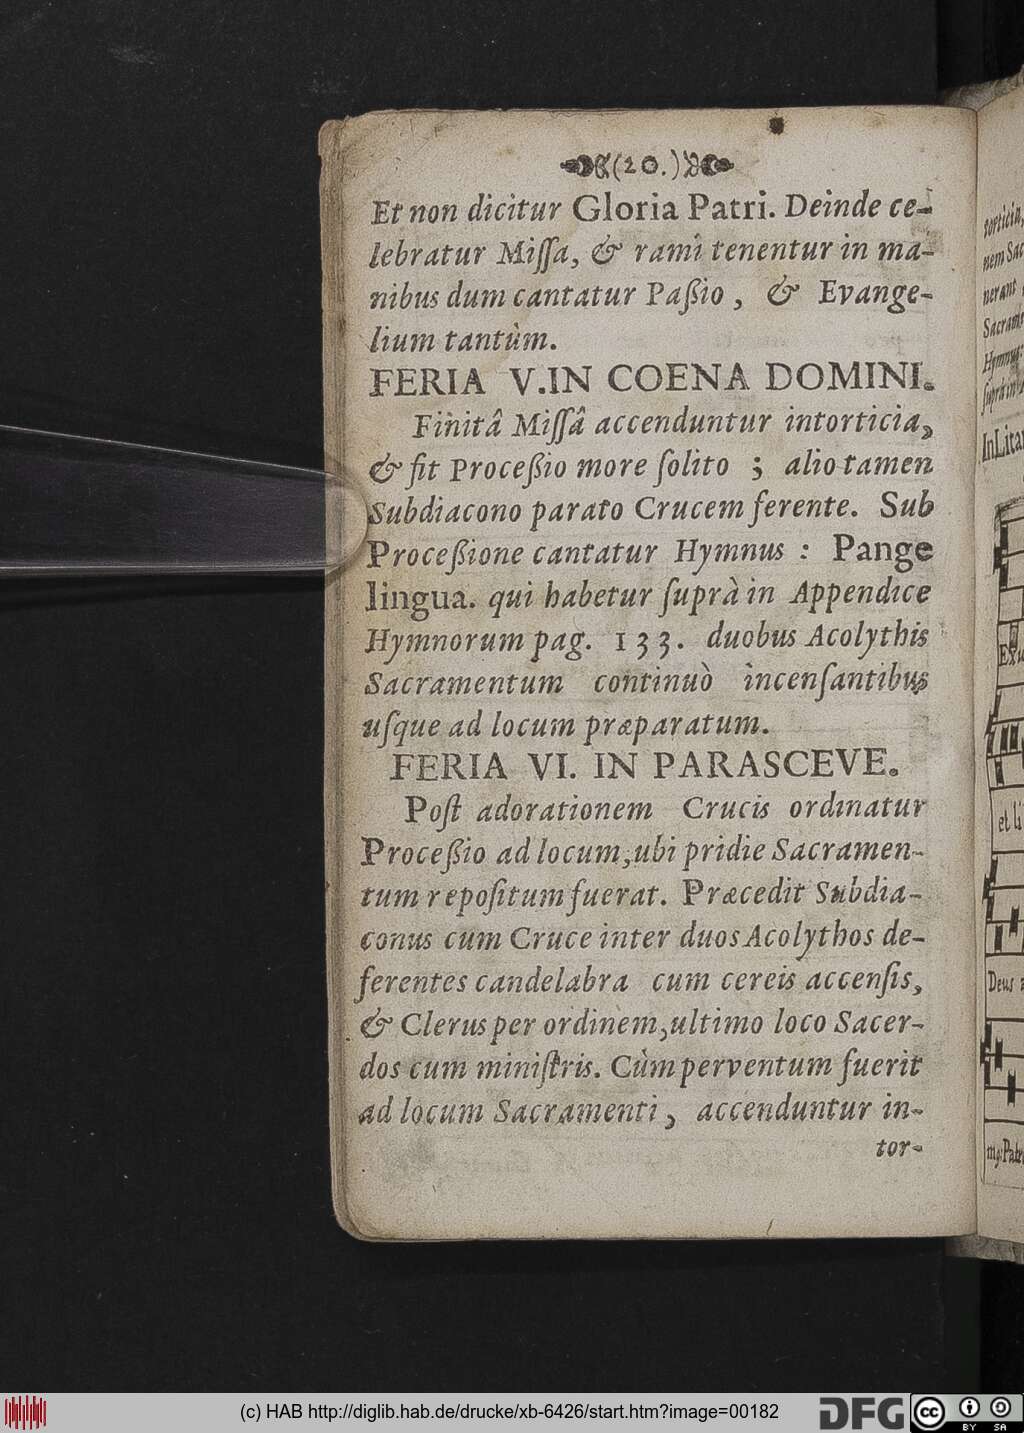 (20.)
Et non dicitur Gloria Patri. Deinde ce-
lebratur Miſſa, & rami tenentur in ma-
nibus dum cantatur Paßio, & Evange-
lium tantùm.
FERIA V. IN COENA DOMINI.
Finitâ Miſſâ accenduntur intorticia,
& fit Proceßio more ſolito ; alio tamen
Subdiacono parato Crucem ferente. Sub
Proceßione cantatur Hymnus : Pange
lingua. qui habetur ſuprà in Appendice
Hymnorum pag. 133. duobus Acolythis
Sacramentum continuò incenſantibus
uſque ad locum præparatum.
FERIA VI. IN PARASCEVE.
Poſt adorationem Crucis ordinatur
Proceßio ad locum, ubi pridie Sacramen-
tum repoſitum fuerat. Præcedit Subdia-
conus cum Cruce inter duos Acolythos de-
ferentes candelabra cum cereis accenſis,
& Clerus per ordinem, ultimo loco Sacer-
dos cum miniſtris. Cùm perventum fuerit
ad locum Sacramenti, accenduntur in-
tor-
torticia,
nem Sac
nerant
Sacrame
Hymnus:
ſuprà in
In Litan
Exu
et li
Deus
my: Pate
(c) HAB http://diglib.hab.de/drucke/xb-6426/start.htm?image=00182
DFG
cc
BY SA